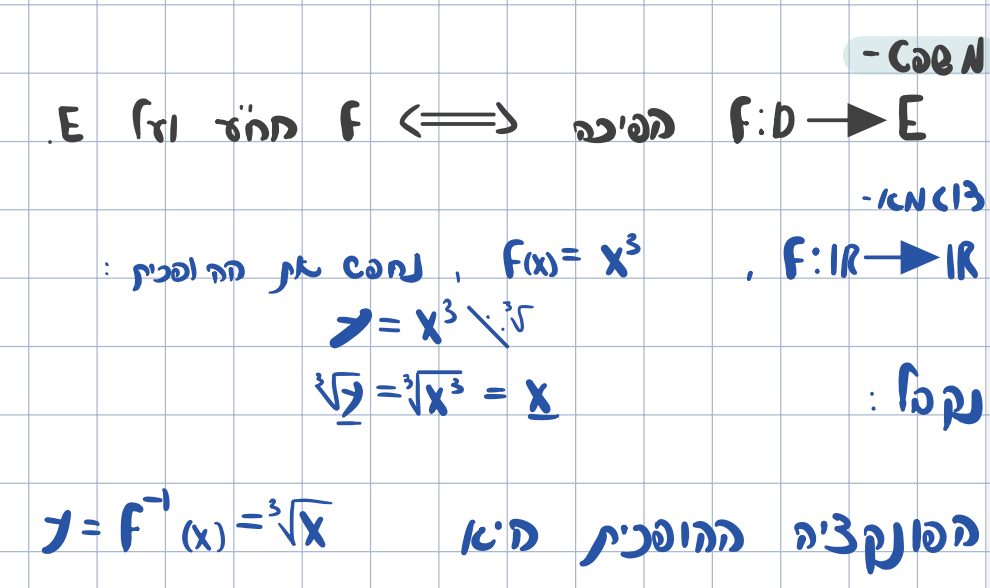 משפט -
F:D → E הפיכה ⟺ F חח״ע ועל E.
דוגמא -
F:ℝ → ℝ , F(x) = x³ , נחפש את ההופכית :
y = x³ \ :∛
נקבל : ∛y = ∛x³ = x
הפונקציה ההופכית היא y = F⁻¹(x) = ∛x